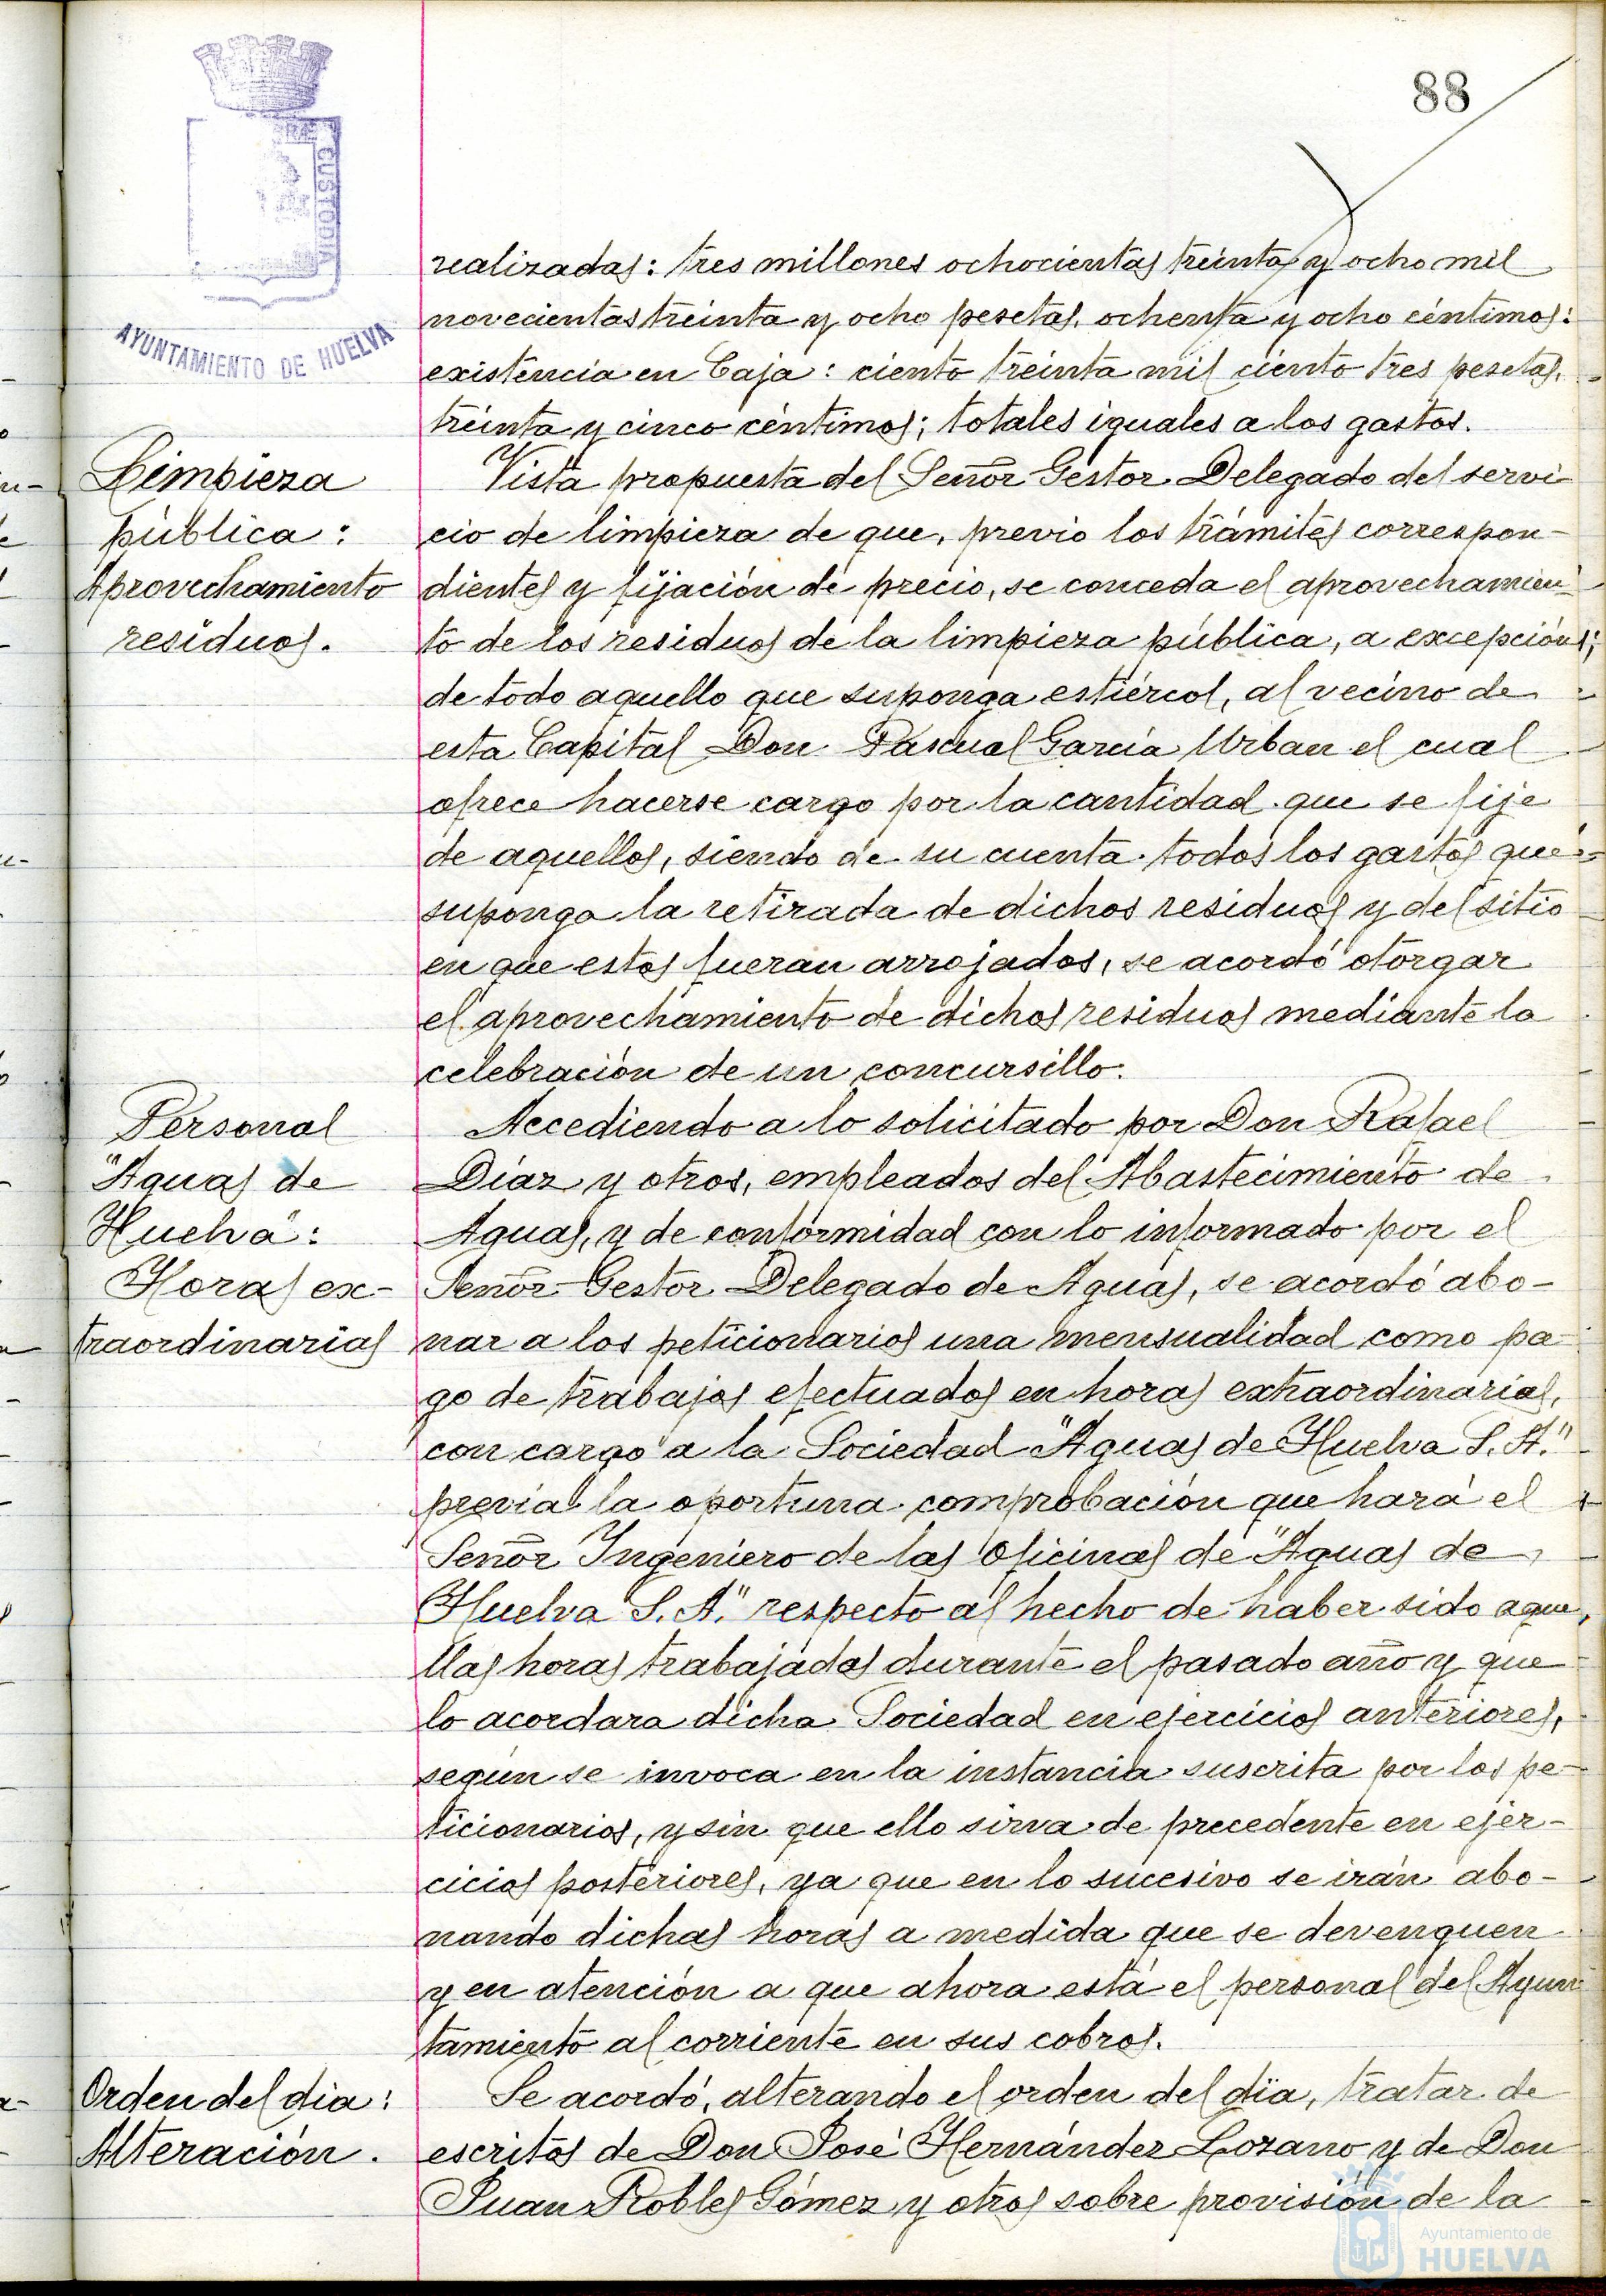 88
CUSTODIA
AYUNTAMIENTO DE HUELVA
realizadas: tres millones ochocientas treinta y ocho mil
novecientas treinta y ocho pesetas, ochenta y ocho céntimos:
existencia en Caja: ciento treinta mil ciento tres pesetas,
treinta y cinco céntimos; totales iguales a los gastos.
Limpieza
pública:
Aprovechamiento
residuos.
Vista propuesta del Señor Gestor Delegado del servi
cio de limpieza de que, previo los trámites correspon-
dientes y fijación de precio, se conceda el aprovechamien-
to de los residuos de la limpieza pública, a excepción
de todo aquello que suponga estiércol, al vecino de
esta Capital Don Pascual García Urban el cual
ofrece hacerse cargo por la cantidad que se fije
de aquellos, siendo de su cuenta todos los gastos que
suponga la retirada de dichos residuos y del sitio
en que estos fueran arrojados, se acordó otorgar
el aprovechamiento de dichos residuos mediante la
celebración de un concursillo.
Personal
"Aguas de
Huelva":
Horas ex-
traordinarias
Accediendo a lo solicitado por Don Rafael
Díaz y otros, empleados del Abastecimiento de
Aguas, y de conformidad con lo informado por el
Señor Gestor Delegado de Aguas, se acordó abo-
nar a los peticionarios una mensualidad como pa-
go de trabajos efectuados en horas extraordinarias,
con cargo a la Sociedad "Aguas de Huelva S. A."
previa la oportuna comprobación que hará el
Señor Ingeniero de las Oficinas de "Aguas de
Huelva S. A." respecto al hecho de haber sido aque,
llas horas trabajadas durante el pasado año y que
lo acordara dicha Sociedad en ejercicios anteriores,
según se invoca en la instancia suscrita por los pe-
ticionarios, y sin que ello sirva de precedente en ejer-
cicios posteriores, ya que en lo sucesivo se irán abo-
nando dichas horas a medida que se devenguen
y en atención a que ahora está el personal del Ayun
tamiento al corriente en sus cobros.
Orden del dia:
Alteración.
Se acordó, alterando el orden del día, tratar de
escritos de Don José Hernández Lozano y de Don
Juan Robles Gómez y otros sobre provisión de la
Ayuntamiento de
HUELVA